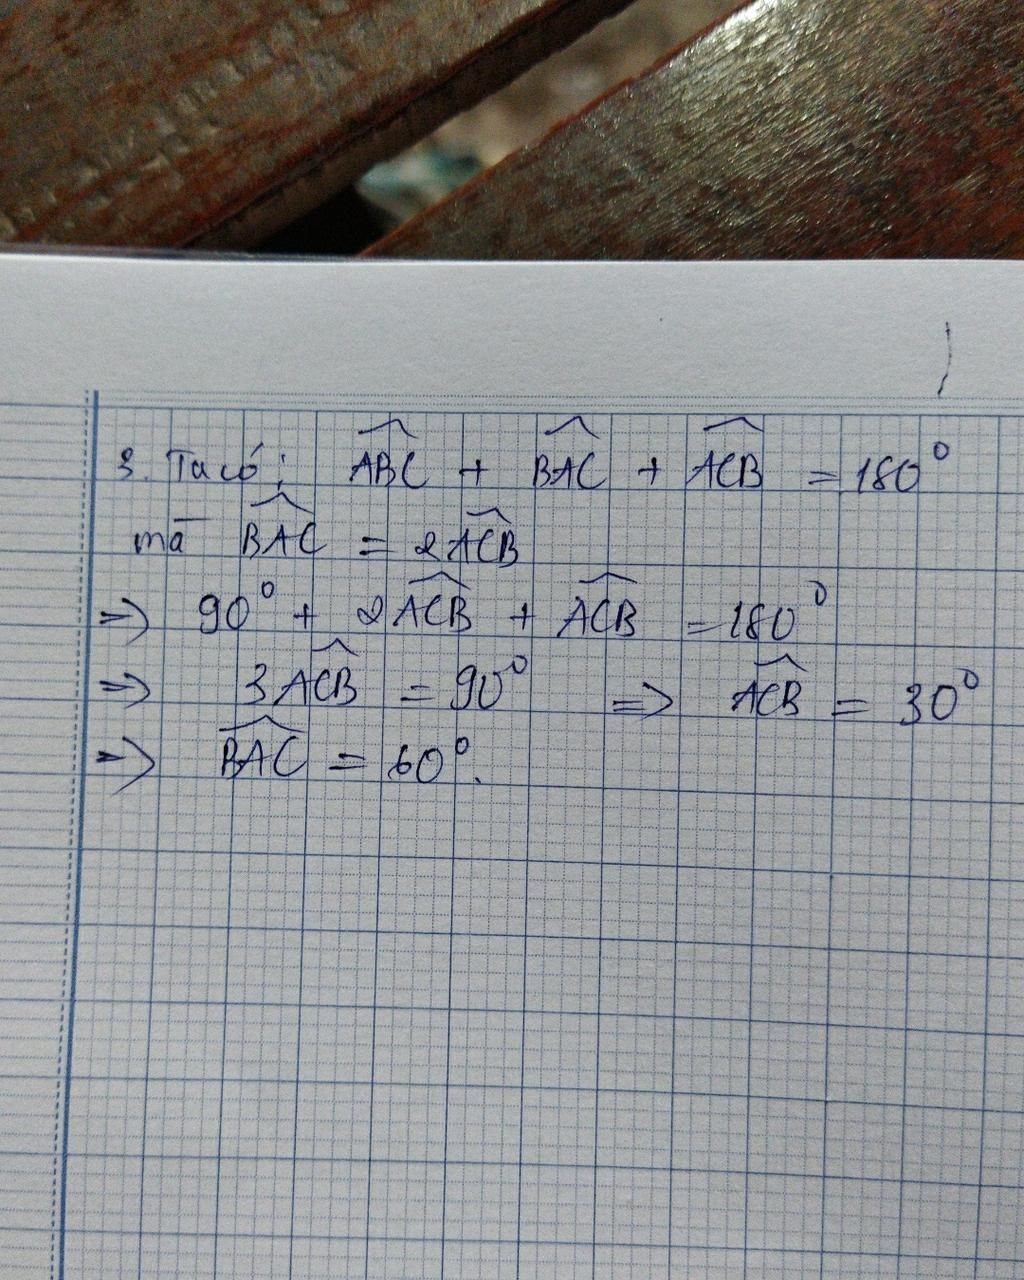 3. Ta có: \widehat{ABC} + \widehat{BAC} + \widehat{ACB} = 180°
mà \widehat{BAC} = 2\widehat{ACB}
=> 90° + 2\widehat{ACB} + \widehat{ACB} = 180°
=> 3\widehat{ACB} = 90° => \widehat{ACB} = 30°
=> \widehat{BAC} = 60°.